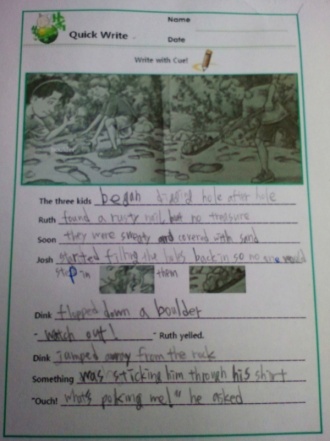 Quick Write
Name
Date
Write with Cue!
The three kids began digg'g hole after hole
Ruth found a rusty nail, but no treasure
Soon they were sweaty and covered with sand
Josh started filling the holes back in so no one would
step in them
Dink flopped down a boulder
"watch out!" Ruth yelled.
Dink jamped away from the rock
Something was sticking him through his shirt
"Ouch! what's poking me!" he asked